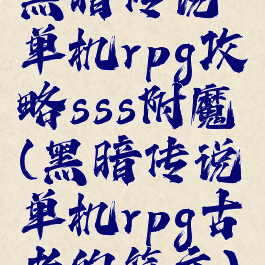 黑暗传说
单机rpg攻
略sss附魔
(黑暗传说
单机rpg古
老的符文)